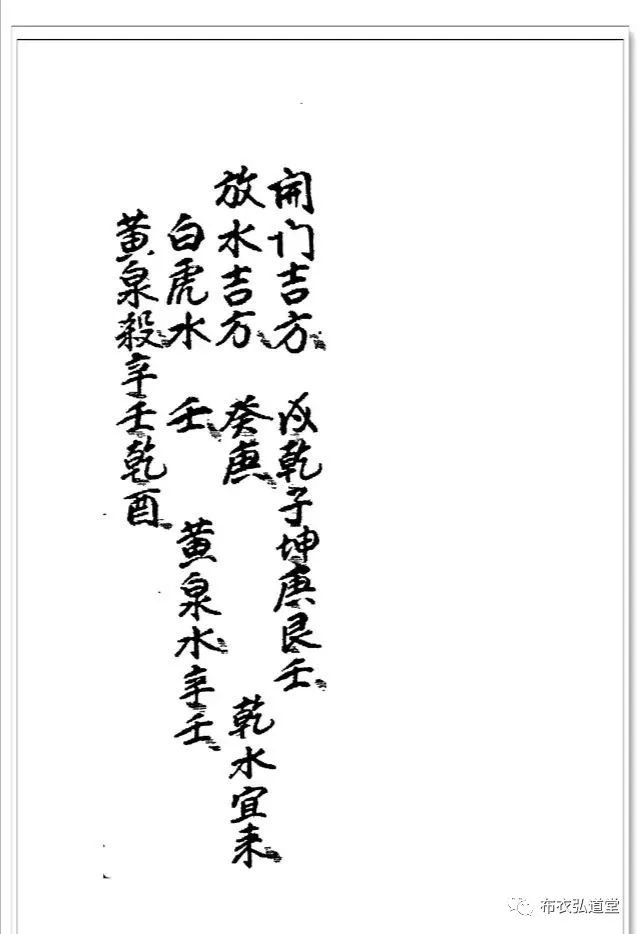 開门吉方 戌乾子坤庚艮壬
放水吉方 癸庚 乾水宜来
白虎水 壬 黄泉水辛壬
黄泉殺辛壬乾酉
布衣弘道堂